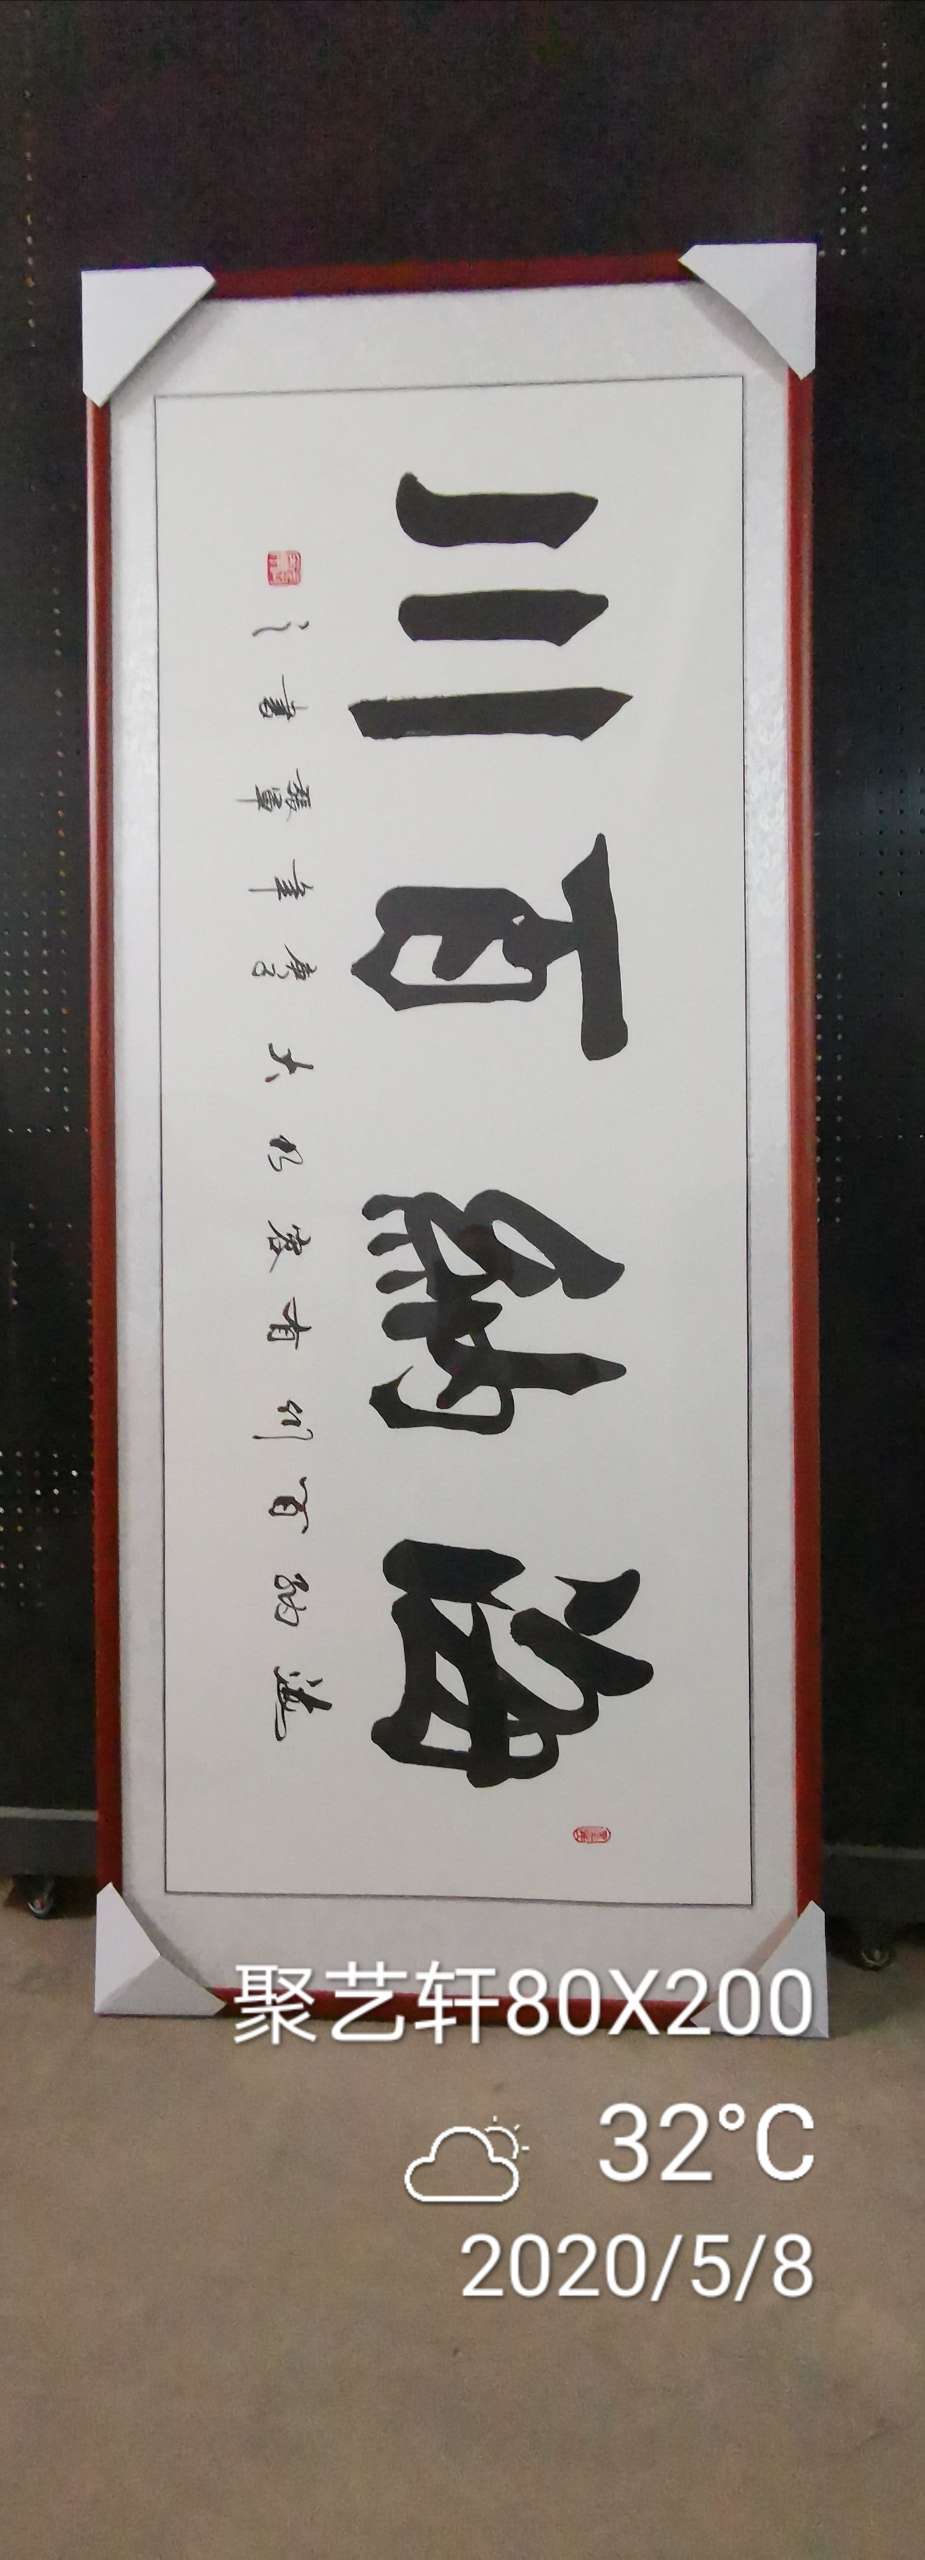 海納百川
海納百川有容乃大庚子年書
聚艺轩80X200
32°C
2020/5/8